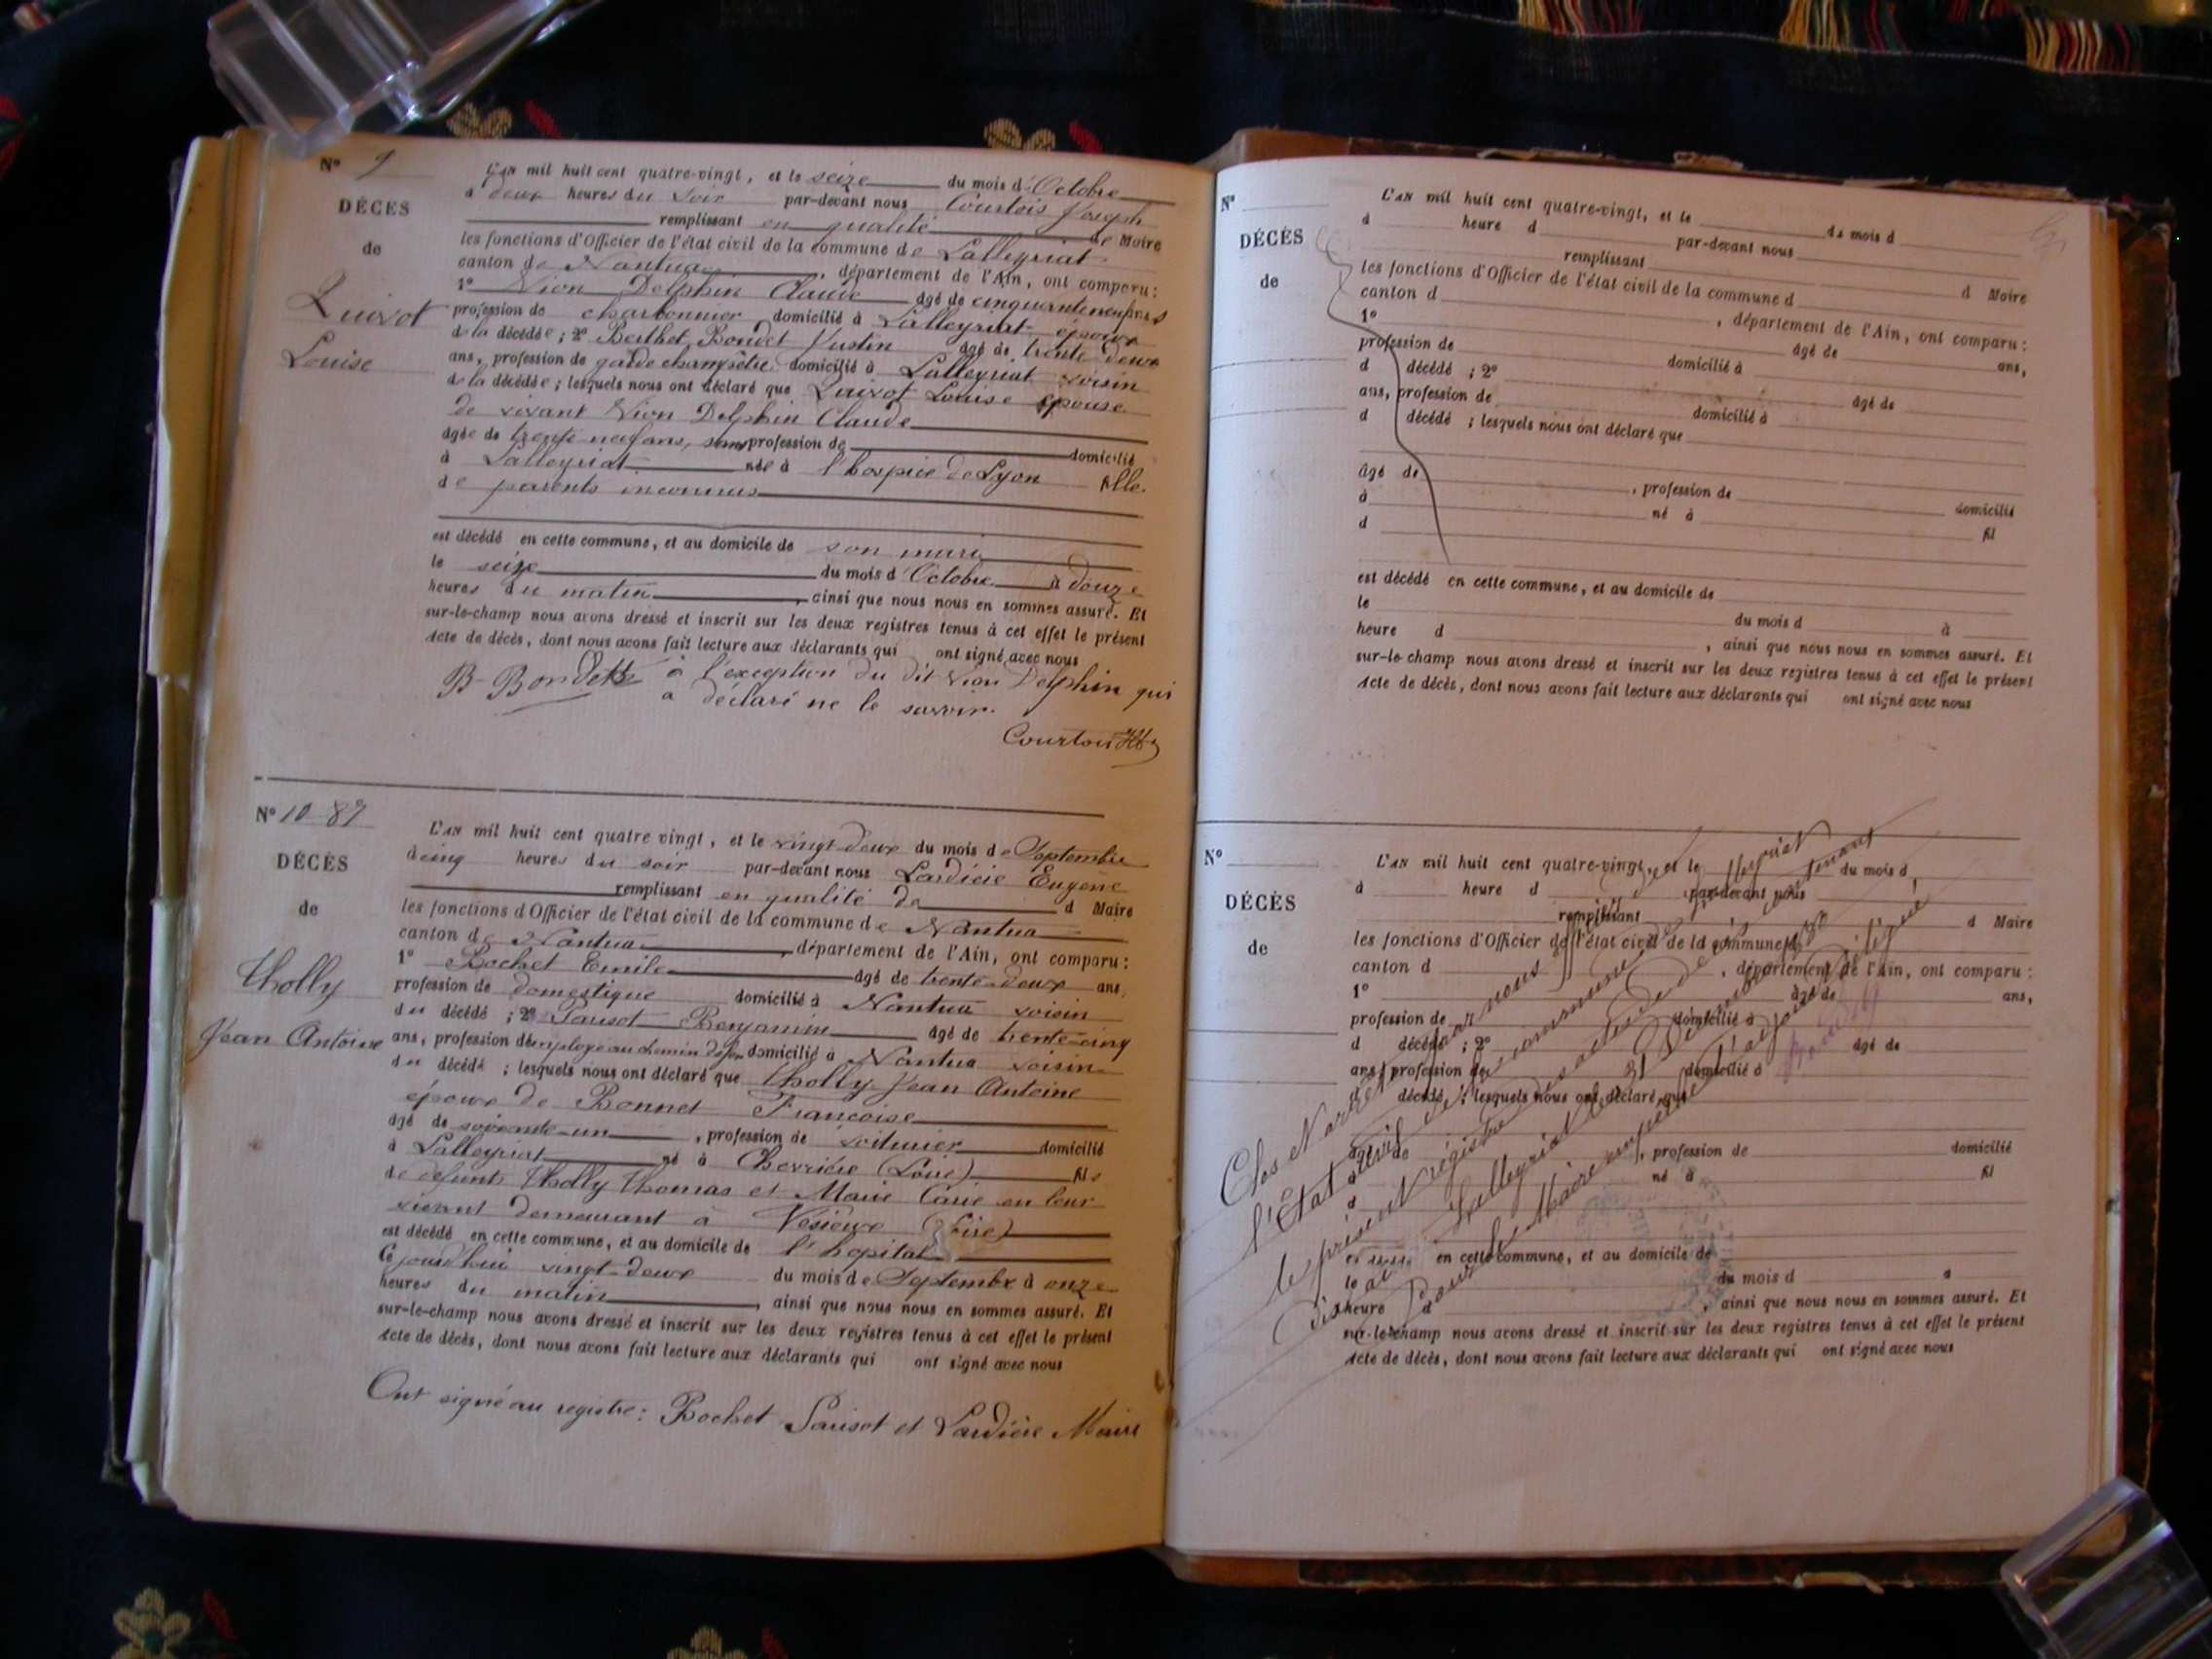 N° 9
DÉCÈS
de
Quivot
Louise
L'AN mil huit cent quatre-vingt, et le seize du mois d'Octobre
à deux heures du soir par-devant nous Courtois Joseph
remplissant en qualité de Maire
les fonctions d'Officier de l'état civil de la commune de Lalleyriat
canton de Nantua, département de l'Ain, ont comparu:
1° Vion Delphin Claude âgé de cinquante neuf ans
profession de charbonnier domicilié à Lalleyriat époux
de la décédée; 2° Berthet Bondet Justin âgé de trente deux
ans, profession de garde champêtre domicilié à Lalleyriat voisin
de la décédée; lesquels nous ont déclaré que Quivot Louise épouse
de vivant Vion Delphin Claude
âgée de trente neuf ans, sans profession de domicilié
à Lalleyriat née à l'hospice de Lyon fille
de parents inconnus
est décédé en cette commune, et au domicile de son mari
le seize du mois d'Octobre à douze
heures du matin, ainsi que nous nous en sommes assuré. Et
sur-le-champ nous avons dressé et inscrit sur les deux registres tenus à cet effet le présent
Acte de décès, dont nous avons fait lecture aux déclarants qui ont signé avec nous
à l'exception du dit Vion Delphin qui
a déclaré ne le savoir.
B-Bondet
Courtois
N° 10 87
DÉCÈS
de
Tholly
Jean Antoine
L'AN mil huit cent quatre vingt, et le vingt-deux du mois de Septembre
à cinq heures du soir par-devant nous Lardière Eugène
remplissant en qualité de d Maire
les fonctions d'Officier de l'état civil de la commune de Nantua
canton de Nantua, département de l'Ain, ont comparu:
1° Bochet Emile âgé de trente-deux ans,
profession de domestique domicilié à Nantua voisin
du décédé; 2° Sausot Benjamin âgé de trente-cinq
ans, profession d'employé au chemin de fer domicilié à Nantua voisin
du décédé; lesquels nous ont déclaré que Tholly Jean Antoine
époux de Bonnet Francoise
âgé de soixante-un, profession de voiturier domicilié
à Lalleyriat né à Chevrière (Loire) fils
de defunts Tholly Thomas et Marie Carie en leur
vivant demeurant à (Loire)
est décédé en cette commune, et au domicile de l'hopital
Ce jourd'hui vingt-deux du mois de Septembre à onze
heures du matin, ainsi que nous nous en sommes assuré. Et
sur-le-champ nous avons dressé et inscrit sur les deux registres tenus à cet effet le présent
Acte de décès, dont nous avons fait lecture aux déclarants qui ont signé avec nous
Ont signé au registre: Bochet Sausot et Lardière Maire
N°
DÉCÈS
de
L'AN mil huit cent quatre-vingt, et le du mois d
à heure d par-devant nous
remplissant d Maire
les fonctions d'Officier de l'état civil de la commune d
canton d, département de l'Ain, ont comparu:
1° âgé de ans,
profession de domicilié à
d décédé; 2° âgé de
ans, profession de domicilié à
d décédé; lesquels nous ont déclaré que
âgé de, profession de domicilié
à né à fil
d
est décédé en cette commune, et au domicile de
le du mois d à
heure d, ainsi que nous nous en sommes assuré. Et
sur-le-champ nous avons dressé et inscrit sur les deux registres tenus à cet effet le présent
Acte de décès, dont nous avons fait lecture aux déclarants qui ont signé avec nous
N°
DÉCÈS
de
L'AN mil huit cent quatre-vingt, et le du mois d
à heure d par-devant nous
remplissant d Maire
les fonctions d'Officier de l'état civil de la commune d
canton d, département de l'Ain, ont comparu:
1° âgé de ans,
profession de domicilié à
d décédé; 2° âgé de
ans, profession de domicilié à
décédé; lesquels nous ont déclaré que
âgé de, profession de domicilié
né à fil
d
en cette commune, et au domicile de
le du mois d à
heure d, ainsi que nous nous en sommes assuré. Et
sur-le-champ nous avons dressé et inscrit sur les deux registres tenus à cet effet le présent
Acte de décès, dont nous avons fait lecture aux déclarants qui ont signé avec nous
Clos et arrêté par nous officier de
l'État civil de la commune de Lalleyriat
le présent registre des actes de décès
Lalleyriat le 31 Décembre
Pour le Maire empêché l'adjoint délégué